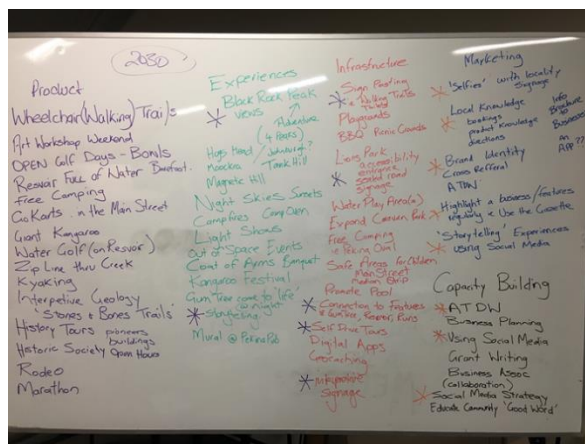 2030
Product
Wheelchair (Walking) Trails
Art Workshop Weekend
OPEN Golf Days - Bonds
Resvoir Full of Water Barefoot.
Free Camping
Go Karts in the Main Street
Giant Kangaroo
Water Golf (on Resvoir)
Zip Line thru Creek
Kyaking
Interpetive Geology
'Stones & Bones Trails'
History Tours pioneers
buildings
Historic Society Open Hours
Rodeo
Marathon
Experiences
Black Rock Peak
views
Adventure
(4 Peaks)
Hogs Head
Magnetic Hill
Night Skies Sunsets
Campfires Camp Oven
Light Shows
Out of Space Events
Coat of Arms Banquet
Kangaroo Festival
Gum Tree come to 'life'
at night
storytelling
Mural @
Infrastructure
Sign Posting
Walking Trails
Playgrounds
BBQ Picnic Grounds
Lions Park
accessibility
entrance
sealed road
signage
Water Play Area(s)
Expand Caravan Park
Free Camping
Safe Areas for Children
Main Street
median strip
Promote Pool
Connection to Features
Self Drive Tours
Digital Apps
Geocaching
Signage
Marketing
'Selfies' with locality
Signage
Local Knowledge
bookings
product knowledge
directions
Info
Brochure
Businesses
an
APP??
Brand Identity
Cross Referral
ATDW
Highlight a business/features
regularly & Use the Gazette
'Story telling' Experiences
using Social Media
Capacity Building
ATDW
Business Planning
Using Social Media
Grant Writing
Business Assoc
(collaboration)
Social Media Strategy
Educate Community 'Good Word'